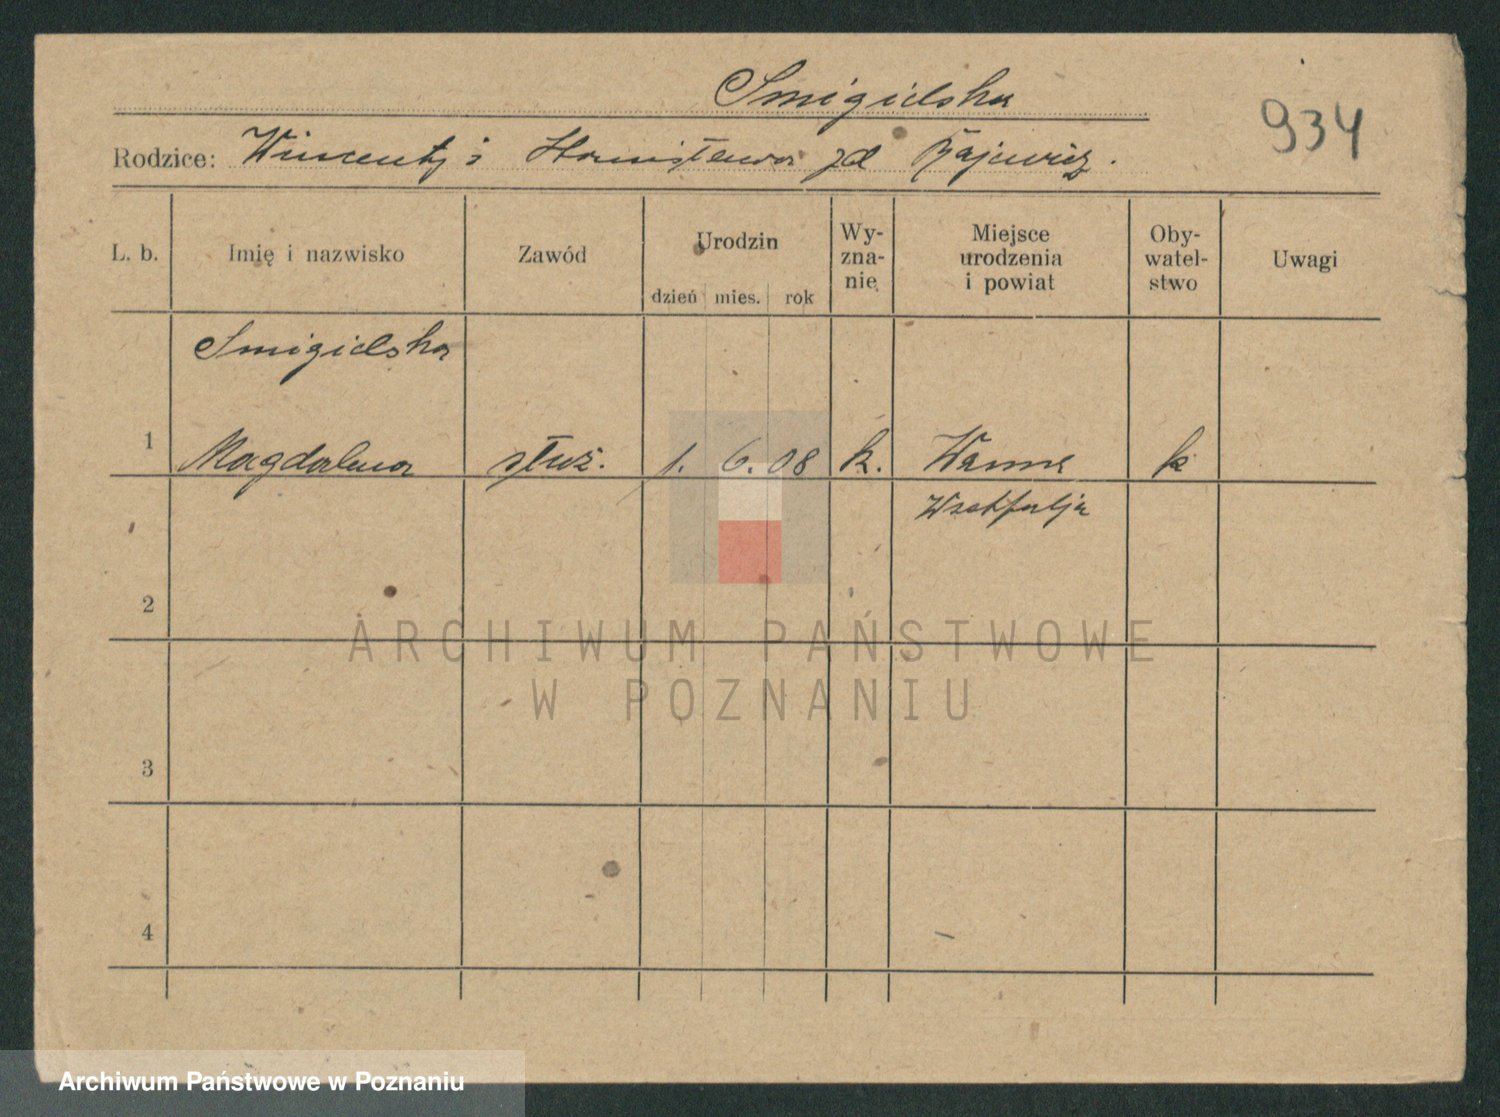 Smigielska
934
Rodzice: Wincenty i Stanisława zd Rajewicz.
L. b. Imię i nazwisko Zawód Urodzin Wy- Miejsce Oby- Uwagi
zna- urodzenia watel-
nie i powiat stwo
dzień mies. rok
Smigielska
1 Magdalena służ. 1. 6. 08 k. Wanne k
Westfalja
2
ARCHIWUM PAŃSTWOWE
W POZNANIU
3
4
Archiwum Państwowe w Poznaniu